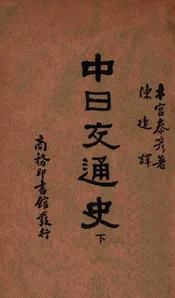 木宮泰彦著
陳捷譯
中日交通史
下
商務印書館發行